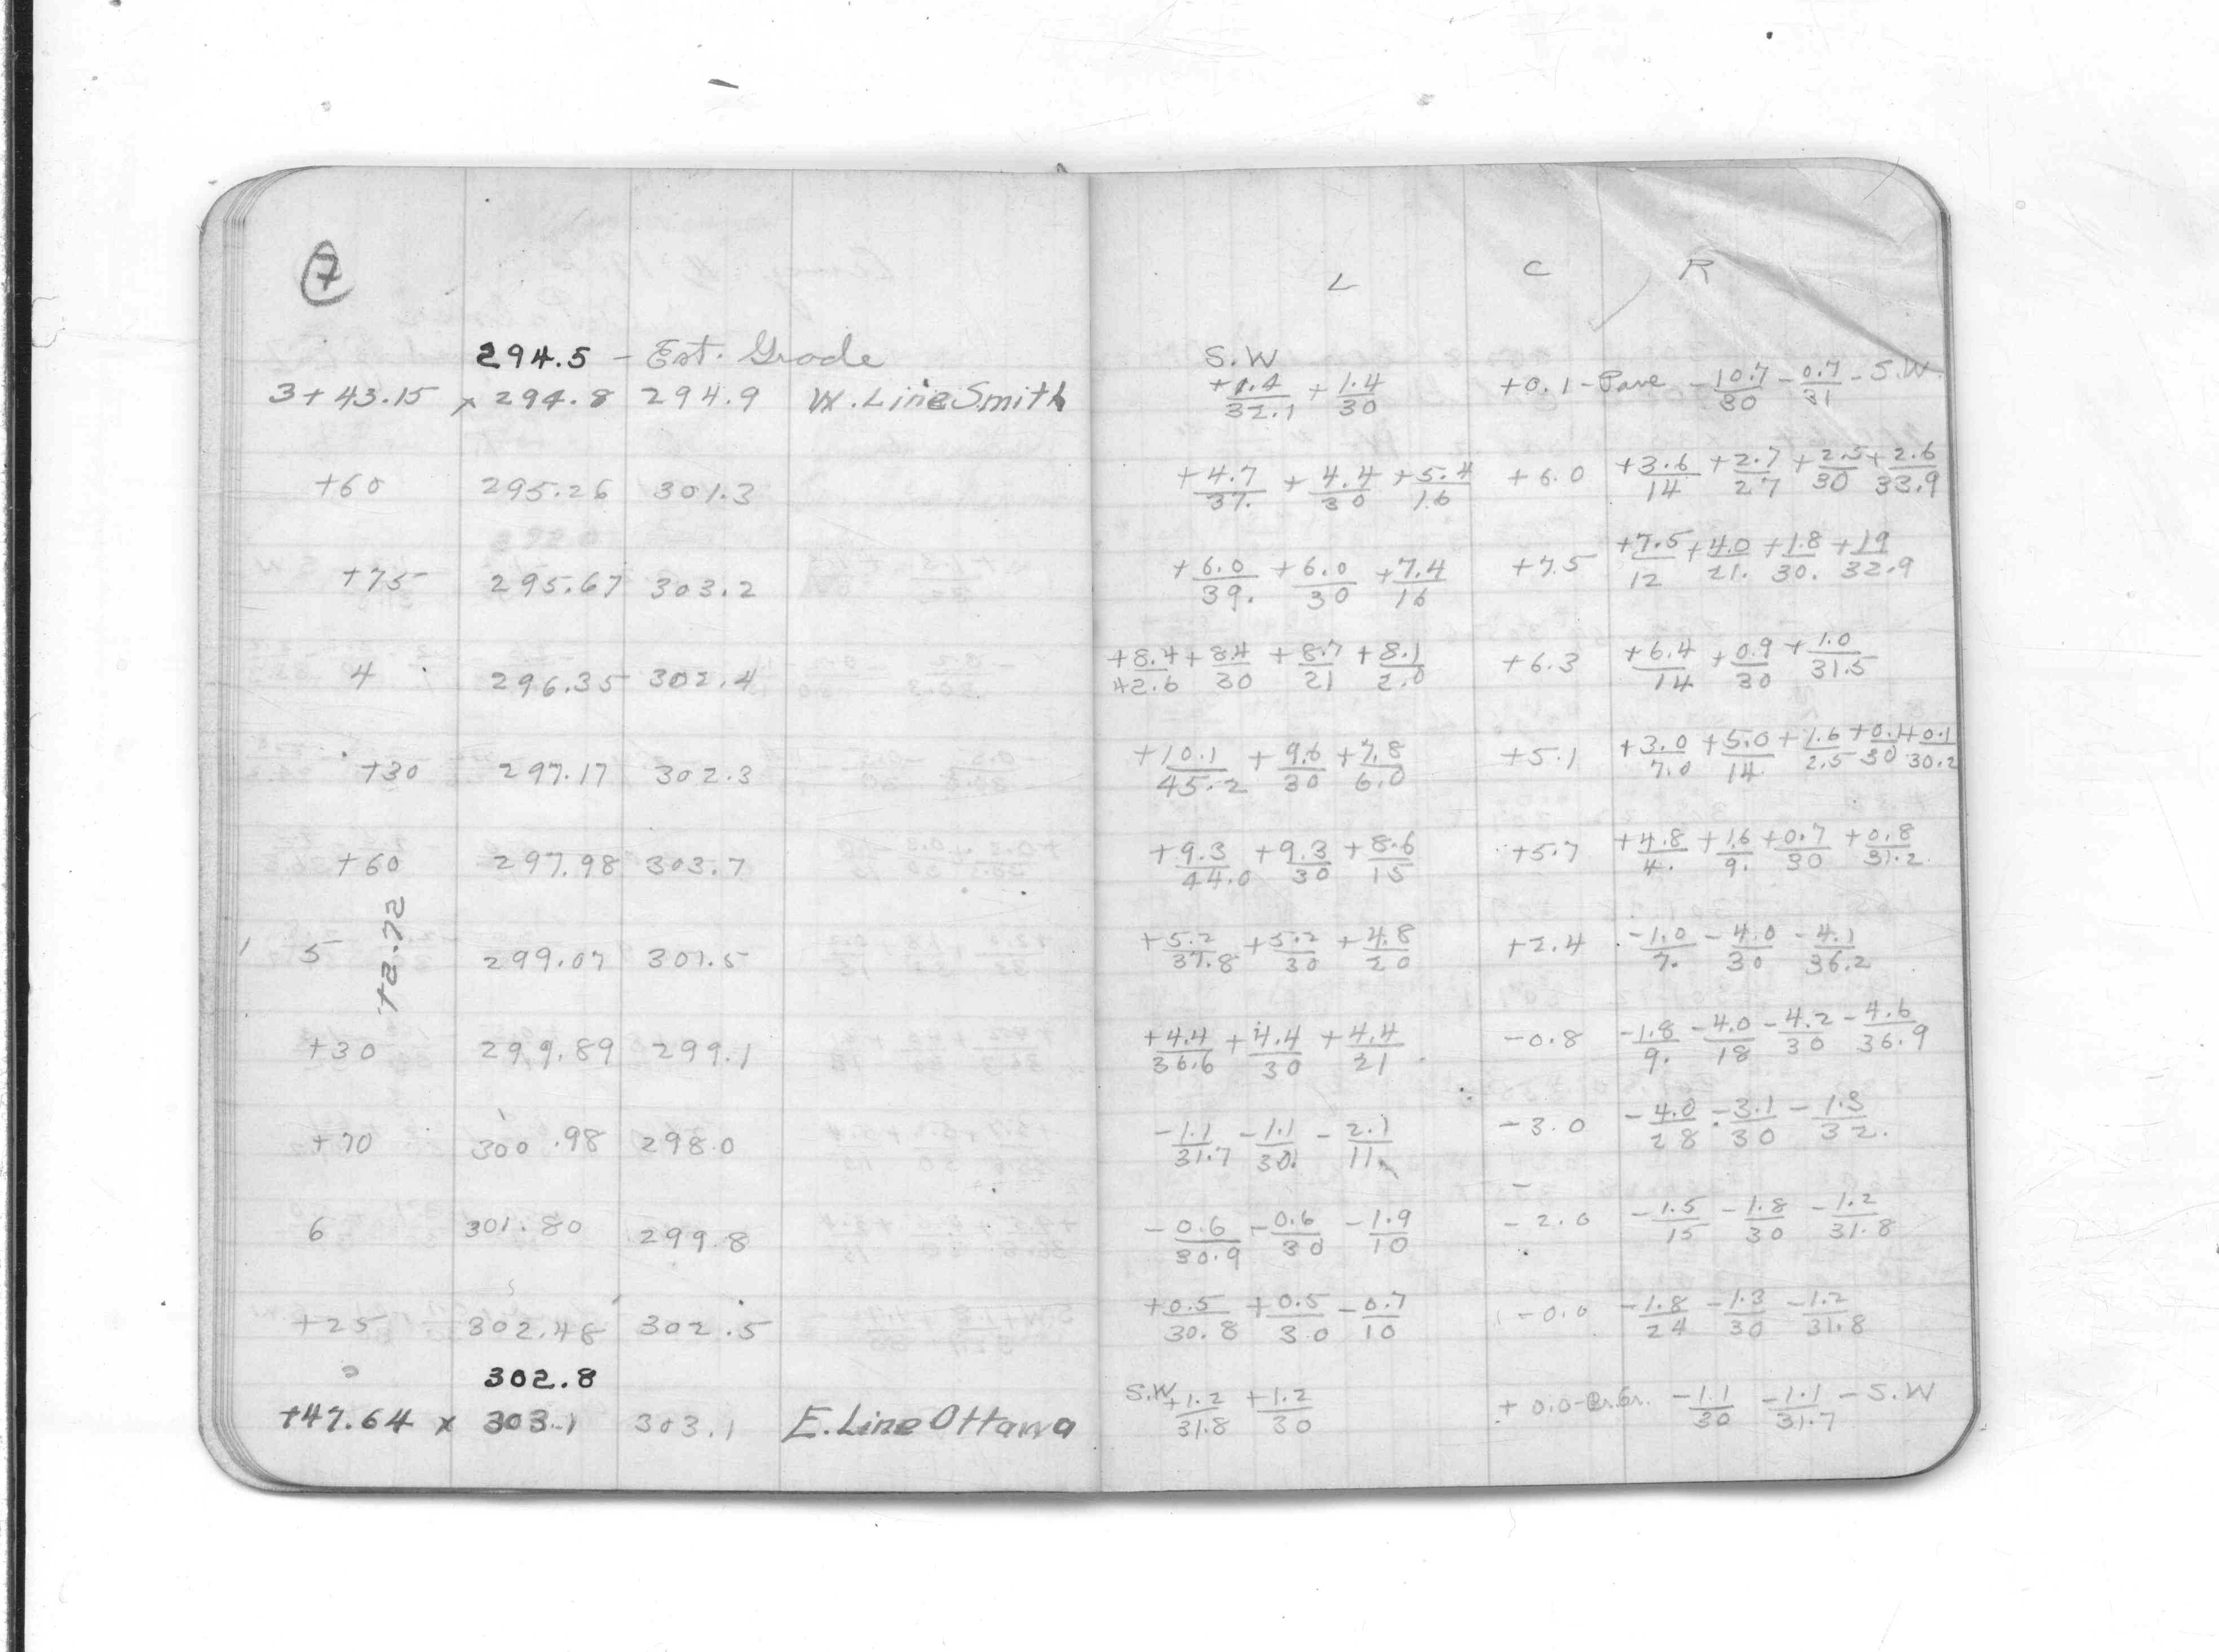 7
L C R
294.5 - Est. Grade
3+43.15 x 294.8 294.9 W. Line Smith S.W +1.4/32.1 +1.4/30 +0.1 - Pave -10.7/30 -0.7/31 - S.W.
+60 295.26 301.3 +4.7/37. +4.4/30 +5.4/16 +6.0 +3.6/14 +2.7/27 +2.5/30 +2.6/33.9
+75 295.67 303.2 +6.0/39. +6.0/30 +7.4/16 +7.5 +7.5/12 +4.0/21. +1.8/30. +1.9/32.9
4 296.35 302.4 +8.4/42.6 +8.4/30 +8.7/21 +8.1/2.0 +6.3 +6.4/14 +0.9/30 +1.0/31.5
+30 297.17 302.3 +10.1/45.2 +9.6/30 +7.8/6.0 +5.1 +3.0/7.0 +5.0/14. +1.6/2.5 +0.1/30 +0.1/30.2
+60 297.98 303.7 +9.3/44.0 +9.3/30 +8.6/15 +5.7 +4.8/4. +1.6/9. +0.7/30 +0.8/31.2
+2.72
5 299.07 301.5 +5.2/37.8 +5.2/30 +4.8/20 +2.4 -1.0/7. -4.0/30 -4.1/36.2
+30 299.89 299.1 +4.4/36.6 +4.4/30 +4.4/21 -0.8 -1.8/9. -4.0/18 -4.2/30 -4.6/36.9
+70 300.98 298.0 -1.1/31.7 -1.1/30. -2.1/11. -3.0 -4.0/28 -3.1/30 -1.3/32.
6 301.80 299.8 -0.6/30.9 -0.6/30 -1.9/10 -2.0 -1.5/15 -1.8/30 -1.2/31.8
+25 302.48 302.5 +0.5/30.8 +0.5/30 -0.7/10 -0.0 -1.8/24 -1.3/30 -1.2/31.8
302.8
+47.64 x 303.1 303.1 E. Line Ottawa S.W +1.2/31.8 +1.2/30 +0.0 - Br. Gr. -1.1/30 -1.1/31.7 - S.W